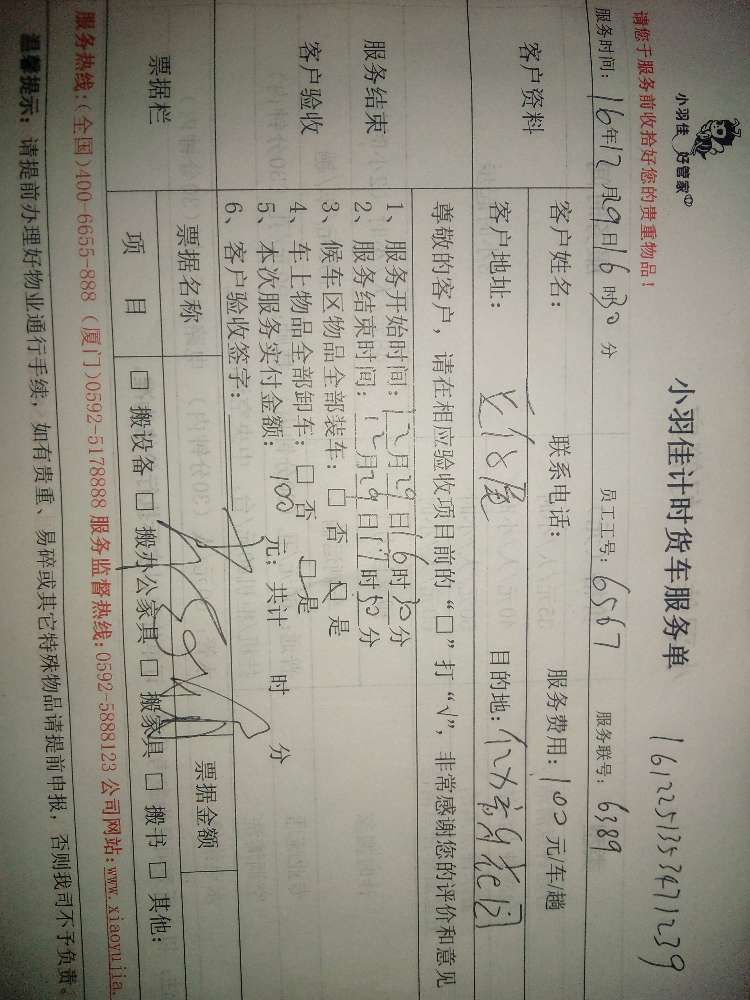 小羽佳 好管家
小羽佳计时货车服务单
1612251353471239
请您于服务前收拾好您的贵重物品!
服务时间: 16年12月29日16时30分 员工工号: 6567 服务联号: 6389
客户资料
客户姓名: 联系电话: 服务费用: 100元/车/趟
客户地址: 目的地:
尊敬的客户, 请在相应验收项目前的“□”打“√”, 非常感谢您的评价和意见
服务结束
客户验收
1、服务开始时间: 12月29日16时30分
2、服务结束时间: 12月29日17时50分
3、候车区物品全部装车: □ 否 □ 是
4、车上物品全部卸车: □ 否 □ 是
5、本次服务实付金额: 100元; 共计 时 分
6、客户验收签字:
票据栏
票据名称 票据金额
项 目 □ 搬设备 □ 搬办公家具 □ 搬家具 □ 搬书 □ 其他:
服务热线:(全国)400-6655-888 (厦门)0592-5178888 服务监督热线:0592-5888123 公司网站:www.xiaoyujia.
温馨提示: 请提前办理好物业通行手续, 如有贵重、易碎或其它特殊物品请提前申报, 否则我司不予负责。